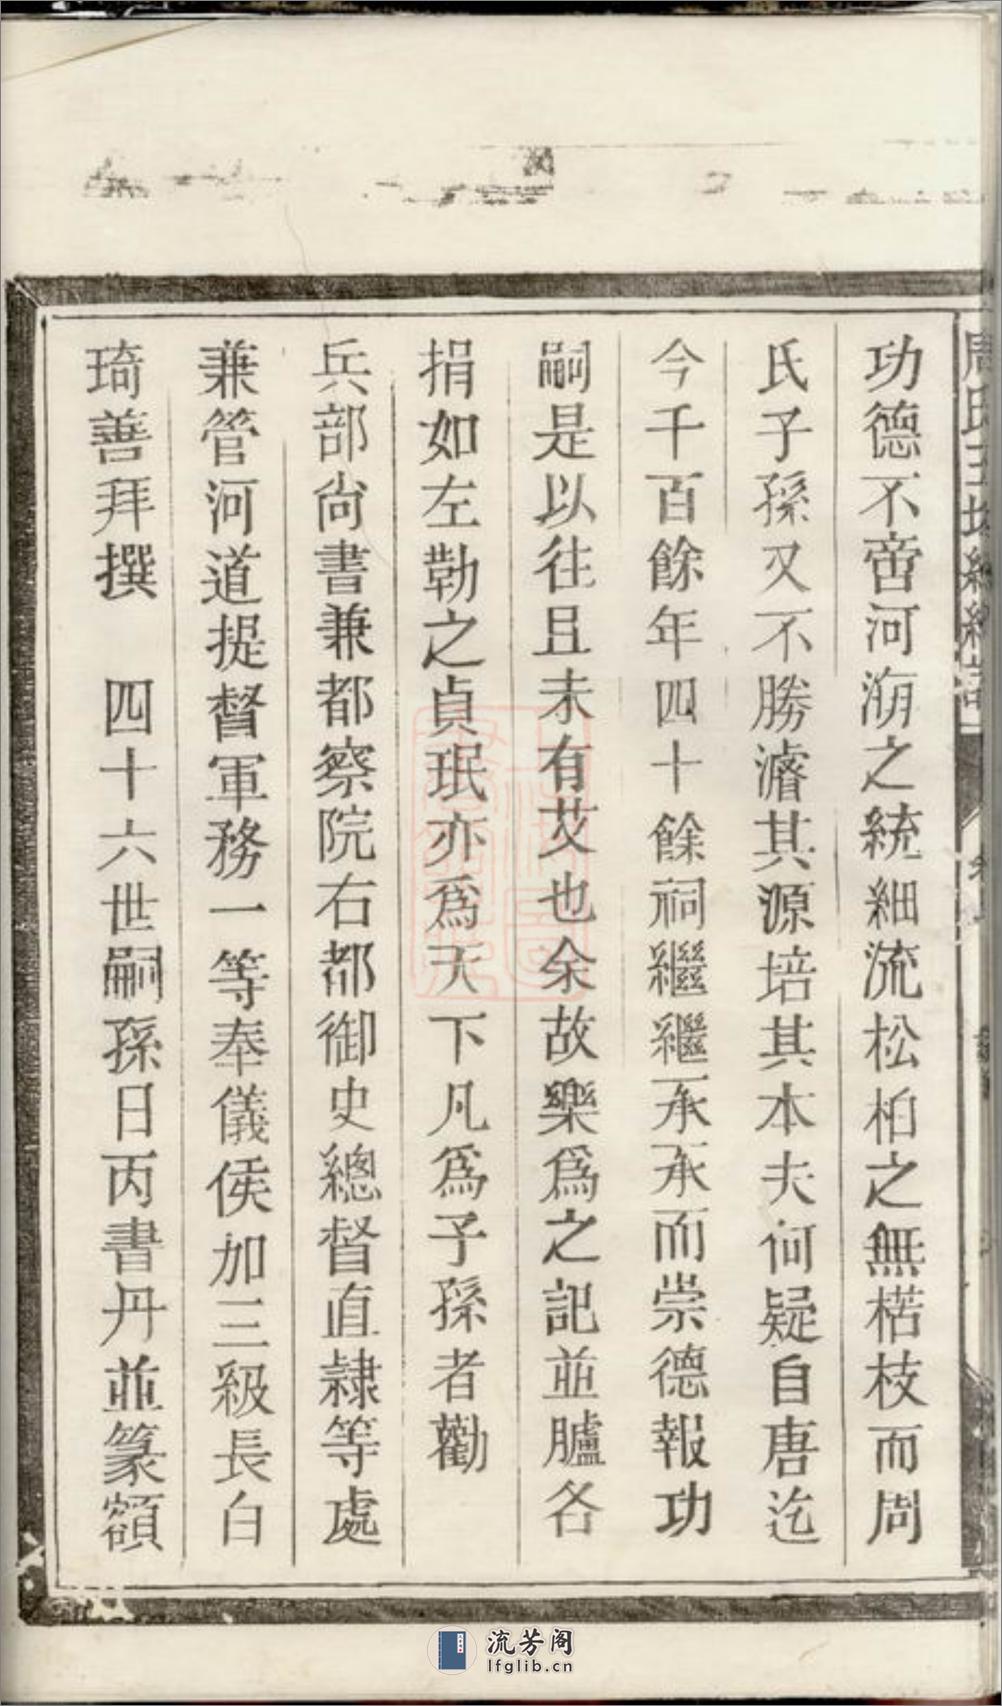 功德不啻河海之統細流松柏之無楛枝而周
氏子孫又不勝濬其源培其本夫何疑自唐迄
今千百餘年四十餘祠繼繼承承而崇德報功
嗣是以往且未有艾也余故樂爲之記並臚各
捐如左勒之貞珉亦爲天下凡爲子孫者勸
兵部尙書兼都察院右都御史總督直隸等處
兼管河道提督軍務一等奉儀侯加三級長白
琦善拜撰　四十六世嗣孫日丙書丹並篆額
流芳阁
lfglib.cn